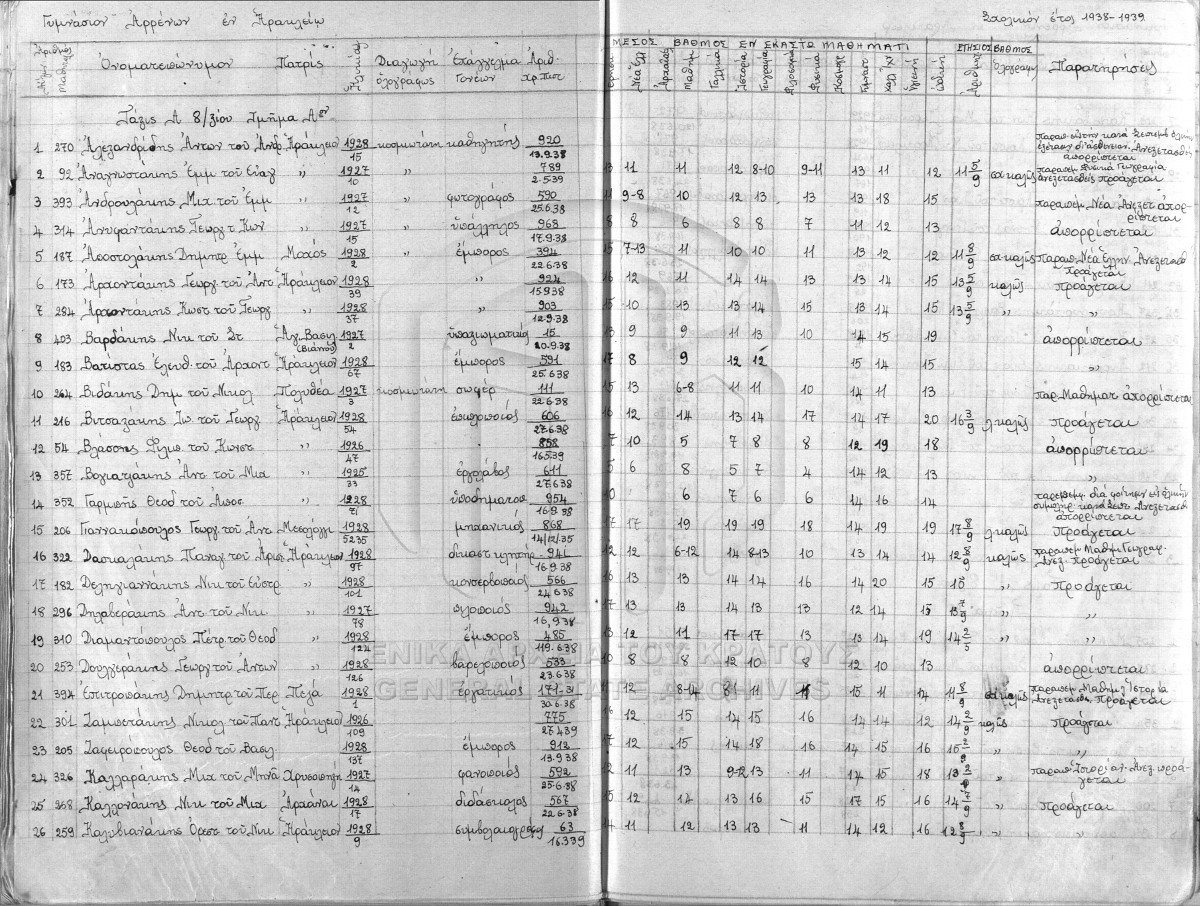 Γυμνάσιον Ἀρρένων ἐν Ἡρακλείῳ
Σχολικόν ἔτος 1938-1939
ΜΕΣΟΣ ΒΑΘΜΟΣ ΕΝ ΕΚΑΣΤΩ ΜΑΘΗΜΑΤΙ ΕΤΗΣΙΟΣ ΒΑΘΜΟΣ
Ὀνοματεπώνυμον Πατρίς Διαγωγή ὁλογράφως Ἐπάγγελμα Γονέων Ἀριθ. Νέα Ἑλλ Ἀρχαῖα Μαθημ Γαλλικά Ἱστορία Γεωγραφία Φυσικά Γυμναστ Ὑγιεινή Ὠδική Ἀριθμητ. Ὁλογράφ Παρατηρήσεις
Τάξις Α 8/ξίου Τμῆμα Αον
1 270 Ἀλεξανδρίδης Ἀντων τοῦ Ἀνδρ. Ἡράκλειον 1928 15 κοσμιωτάτη καθηγητής 920 13.9.38 ἀπορρίπτεται
2 92 Ἀναγνωστάκης Ἐμμ τοῦ Εὐαγ " 1927 10 " " 789 2.5.39 13 11 11 12 8-10 9-11 13 11 12 11 5/9 σχ καλῶς παραπεμ. Φυσικά Γεωγραφία ἀνεξετασθείς προάγεται
3 393 Ἀνδρουλάκης Μιχ τοῦ Ἐμμ " 1927 12 " φωτογράφος 590 25.6.38 11 9-8 10 12 13 13 13 18 15 παραπεμ. Νέα Ἀνεξετ ἀπορρίπτεται
4 314 Ἀνυφαντάκης Γεωργ τ Κων " 1927 15 " ὑπάλληλος 963 17.9.38 8 8 6 8 8 7 11 12 13 ἀπορρίπτεται
5 187 Ἀποστολάκης Δημητρ Ἐμμ Μοχός 1928 2 " ἔμπορος 394 22.6.38 15 7-13 11 10 10 11 13 12 12 11 8/9 σχ καλῶς Παραπ. Νέα Ἑλλην Ἀνεξετασθ προάγεται
6 173 Ἀρχοντάκης Γεωργ. τοῦ Ἀντ Ἡράκλειον 1928 39 " 924 15.9.38 16 12 11 14 14 13 13 14 15 13 5/9 καλῶς προάγεται
7 284 Ἀρχοντάκης Κωστ τοῦ Γεωργ " 1928 37 " 903 12.9.38 15 10 13 13 14 15 13 14 15 13 5/9 " "
8 403 Βαρδάκης Νικ τοῦ Στ Ἁγ. Βασιλ. (Βιάννου) 1927 2 ὑπαξιωματικός 15 20.9.38 13 9 9 11 13 10 14 15 19 ἀπορρίπτεται
9 183 Βατίστας Ἐλευθ. τοῦ Ἀριστ Ἡράκλειον 1928 67 ἔμπορος 591 25.6.38 17 8 9 12 12 15 14 15 "
10 264 Βιδάκης Δημ τοῦ Νικολ 1927 3 κοσμιωτάτη σωφέρ 111 22.6.38 15 13 6-8 11 11 10 14 11 13 παρ. Μαθηματ ἀπορρίπτεται
11 216 Βιτσαξάκης Ἰω. τοῦ Γεωργ Ἡράκλειον 1928 54 ἐπιπλοποιός 606 27.6.38 16 12 14 13 14 17 14 17 20 16 3/9 λ. καλῶς προάγεται
12 54 Βλάσσης Φιλιπ. τοῦ Κωνστ " 1926 47 858 7 10 5 7 8 8 12 19 18 ἀπορρίπτεται
13 357 Βογιατζάκης Ἀντ τοῦ Μιχ 1925 33 ἐργολάβος 611 27.6.38 5 6 8 5 7 4 14 12 13
14 352 Θεοδ τοῦ Ἀποστ " 1928 71 ὑποδηματοπ 954 16.9.38 10 6 7 6 6 14 16 14 ἀπορρίπτεται
15 206 Γιαννακόπουλος Γεωργ. τοῦ Ἀντ. Μεσολόγγι 1928 5235 μηχανικός 868 14/12/35 17 17 19 19 19 18 14 19 19 17 8/9 λ. καλῶς προάγεται
16 322 Δασκαλάκης Παναγ τοῦ Ἀριστ Ἡράκλειον 1928 97 δικαστ κλητήρ 941 16.9.38 12 12 6-12 14 8-13 10 13 14 14 12 8/9 καλῶς παραπεμ Μαθημ Γεωγραφ. Ἀνεξ. προάγεται
17 182 Δεληγιαννάκης Νικ τοῦ Εὐστρ. " 1928 101 κονσερβοποιός 566 24.6.38 16 13 13 14 14 16 14 20 15 15 " προάγεται
18 296 Ἀντ τοῦ Νικ " 1927 78 πιλοποιός 942 16.9.38 17 13 13 14 13 13 12 14 15 13 7/9 " "
19 310 Διαμαντόπουλος Πέτρ. τοῦ Θεοδ " 1928 124 ἔμπορος 485 119.6.38 13 12 11 17 17 13 13 14 19 14 2/5 " "
20 253 Δουλγεράκης Γεωργ τοῦ Ἀντων " 1928 126 βαρελοποιός 533 23.6.38 10 8 8 12 10 8 12 10 13 ἀπορρίπτεται
21 394 Ἐπιτροπάκης Δημητρ τοῦ Περ. Πεζά 1928 1 ἐργατικός 171-31 30.6.38 12 8-14 8 11 11 15 11 14 11 8/9 σχ καλῶς παραπεμ. Μαθημ Ἱστορία Ἀνεξετασθ. Προάγεται
22 301 Ζαμπετάκης Νικολ τοῦ Παντ Ἡράκλειον 1926 109 775 27.4.39 16 12 15 14 15 16 14 14 12 14 2/9 καλῶς προάγεται
23 205 Ζαφειρόπουλος Θεοδ τοῦ Βασιλ. 1928 137 ἔμπορος 912 13.9.38 17 12 15 14 18 16 14 15 16 15 2/9 " "
24 326 Καλλαράκης Μιχ τοῦ Μηνᾶ Χρυσοπηγή 1927 14 φανοποιός 592 25.6.38 12 11 13 9-12 13 11 14 15 18 13 2/9 " παραπ Ἱστορί αλ. Ἀνεξ. προάγεται
25 268 Καλλονάκης Νικ τοῦ Μιχ Ἀρχάναι 1928 17 διδάσκαλος 567 22.6.38 15 12 14 13 16 15 17 15 16 14 7/9 " προάγεται
26 259 Καλυβιανάκης Ὀρεστ τοῦ Νικ. Ἡράκλειον 1928 9 συμβολαιογράφος 63 16.3.39 14 11 12 13 13 11 14 12 16 12 8/9 " "
ΓΕΝΙΚΑ ΑΡΧΕΙΑ ΤΟΥ ΚΡΑΤΟΥΣ
GENERAL STATE ARCHIVES